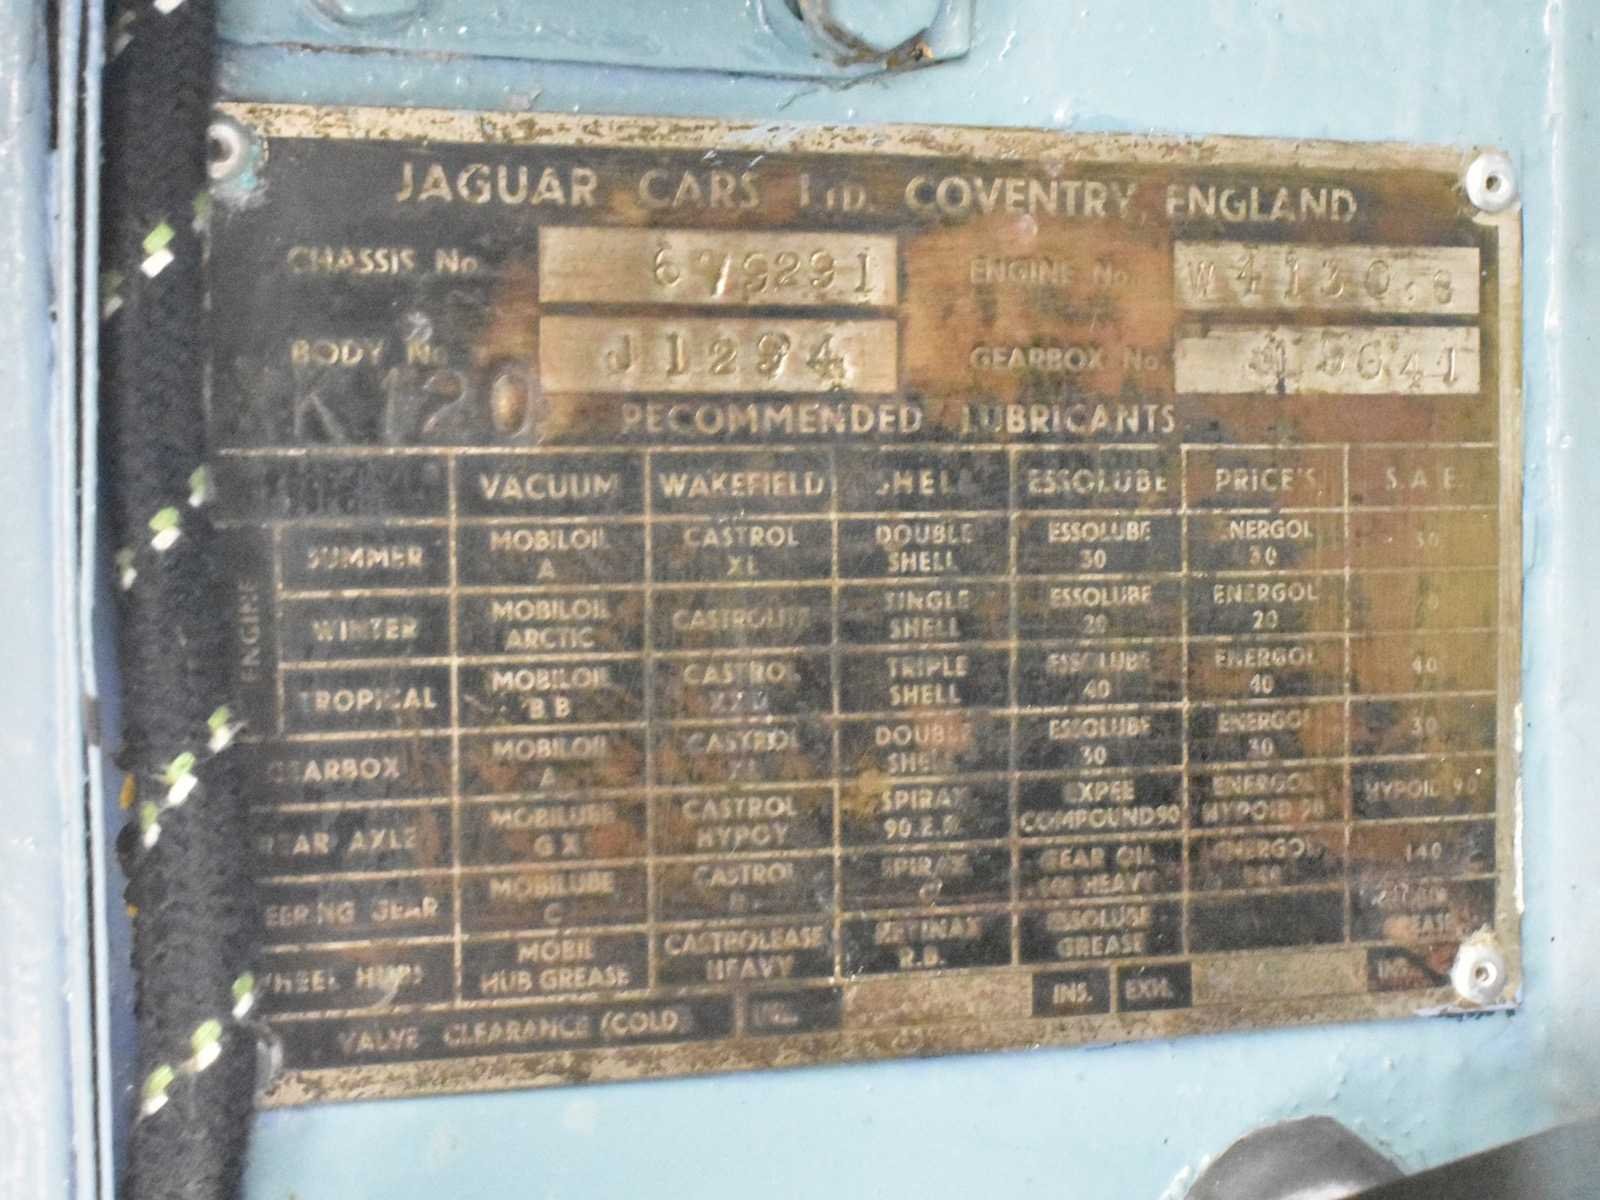 JAGUAR CARS LTD. COVENTRY, ENGLAND
CHASSIS No. 679291 ENGINE No. W4130.8
BODY No. J1294 GEARBOX No.
K120 RECOMMENDED LUBRICANTS
VACUUM WAKEFIELD SHELL ESSOLUBE PRICE'S S.A.E.
ENGINE
SUMMER MOBILOIL A CASTROL XL DOUBLE SHELL ESSOLUBE 30 ENERGOL 30 30
WINTER MOBILOIL ARCTIC CASTROLITE SINGLE SHELL ESSOLUBE 20 ENERGOL 20
TROPICAL MOBILOIL BB CASTROL TRIPLE SHELL ESSOLUBE 40 ENERGOL 40 40
GEARBOX MOBILOIL A CASTROL XL DOUBLE SHELL ESSOLUBE 30 ENERGOL 30 30
REAR AXLE MOBILUBE GX CASTROL HYPOY SPIRAX 90.E.P. EXPEE COMPOUND 90 ENERGOL HYPOID 90 HYPOID 90
EERING GEAR MOBILUBE C CASTROL SPIRAX C GEAR OIL HEAVY ENERGOL 140
WHEEL HUBS MOBIL HUB GREASE CASTROLEASE HEAVY RETINAX R.B. ESSOLUBE GREASE GREASE
VALVE CLEARANCE (COLD) INL. INS. EXH. INS.